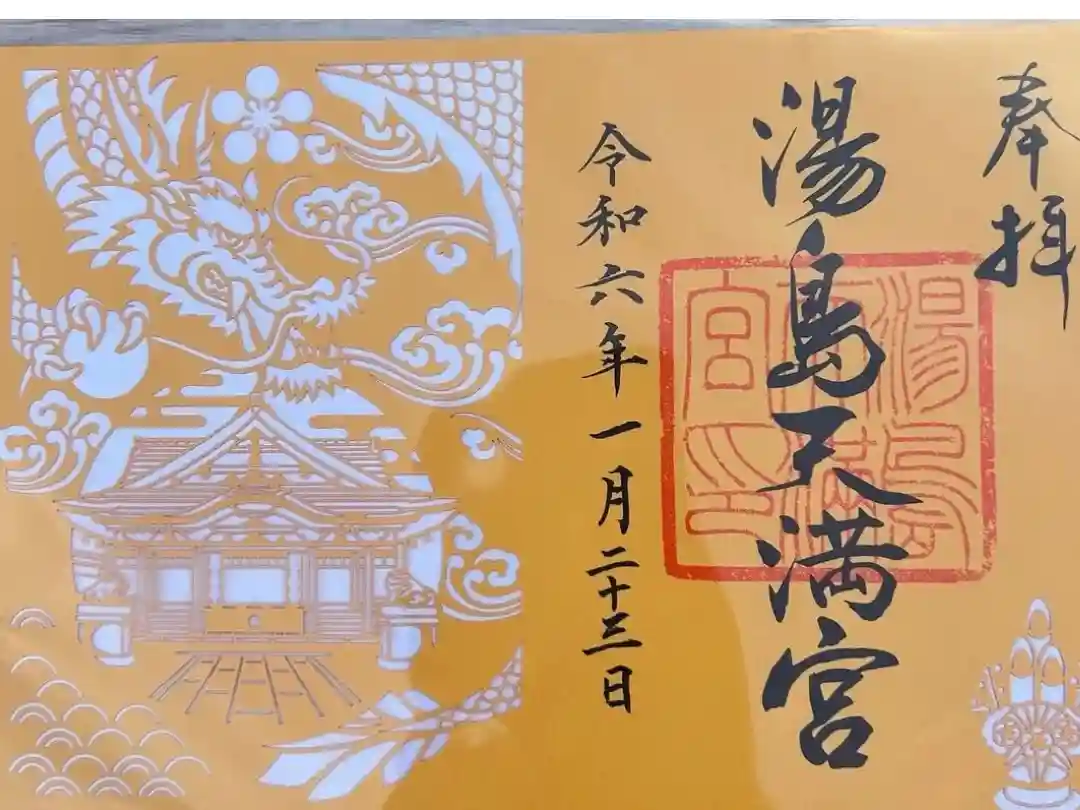 奉拝
湯島天満宮
湯島天満宮印
令和六年一月二十三日